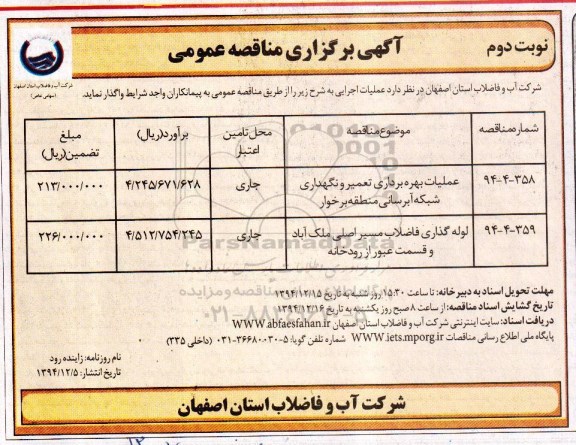 نوبت دوم
آگهی برگزاری مناقصه عمومی
شرکت آب و فاضلاب استان اصفهان
(سهامی خاص)
شرکت آب و فاضلاب استان اصفهان در نظر دارد عملیات اجرایی به شرح زیر را از طریق مناقصه عمومی به پیمانکاران واجد شرایط واگذار نماید.
شماره مناقصه موضوع مناقصه محل تامین اعتبار برآورد(ریال) مبلغ تضمین(ریال)
۹۴-۴-۳۵۸ عملیات بهره برداری تعمیر و نگهداری شبکه آبرسانی منطقه برخوار جاری ۴/۲۴۵/۶۷۱/۶۲۸ ۲۱۳/۰۰۰/۰۰۰
۹۴-۴-۳۵۹ لوله گذاری فاضلاب مسیر اصلی ملک آباد و قسمت عبور از رودخانه جاری ۴/۵۱۲/۷۵۴/۲۴۵ ۲۲۶/۰۰۰/۰۰۰
ParsNamadData
مهلت تحویل اسناد به دبیرخانه: تا ساعت ۱۵:۳۰ روز شنبه به تاریخ ۱۳۹۴/۱۲/۱۵
تاریخ گشایش اسناد مناقصه: از ساعت ۸ صبح روز یکشنبه به تاریخ ۱۳۹۴/۱۲/۱۶
دریافت اسناد: سایت اینترنتی شرکت آب و فاضلاب استان اصفهان WWW.abfaesfahan.ir
پایگاه ملی اطلاع رسانی مناقصات WWW.iets.mporg.ir شماره تلفن گویا: ۵-۳۶۶۸۰۰۳۰-۰۳۱ (داخلی ۳۳۵)
نام روزنامه: زاینده رود
تاریخ انتشار: ۱۳۹۴/۱۲/۵
شرکت آب و فاضلاب استان اصفهان